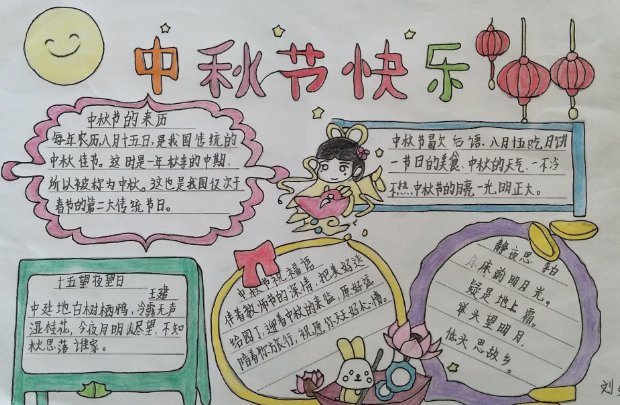 中秋节快乐
中秋节的来历
每年农历八月十五日,是我国传统的
中秋佳节。这时是一年秋季的中期,
所以被称为中秋。这也是我国仅次于
春节的第二大传统节日。
中秋节歇后语:八月十五吃月饼
一节日的美食、中秋的天气,一不冷
不热,中秋节的月亮一光明正大。
十五望夜望日
王建
中庭地白树栖鸦,冷露无声
湿桂花,今夜月明人尽望,不知
秋思落谁家。
中秋节祝福语
伴着教师节的深情,把美好送
给园丁,迎着中秋的美临,愿好运
陪着你旅行,祝愿你天天好心情。
静夜思 李白
床前明月光。
疑是地上霜。
举头望明月,
低头思故乡。
刘